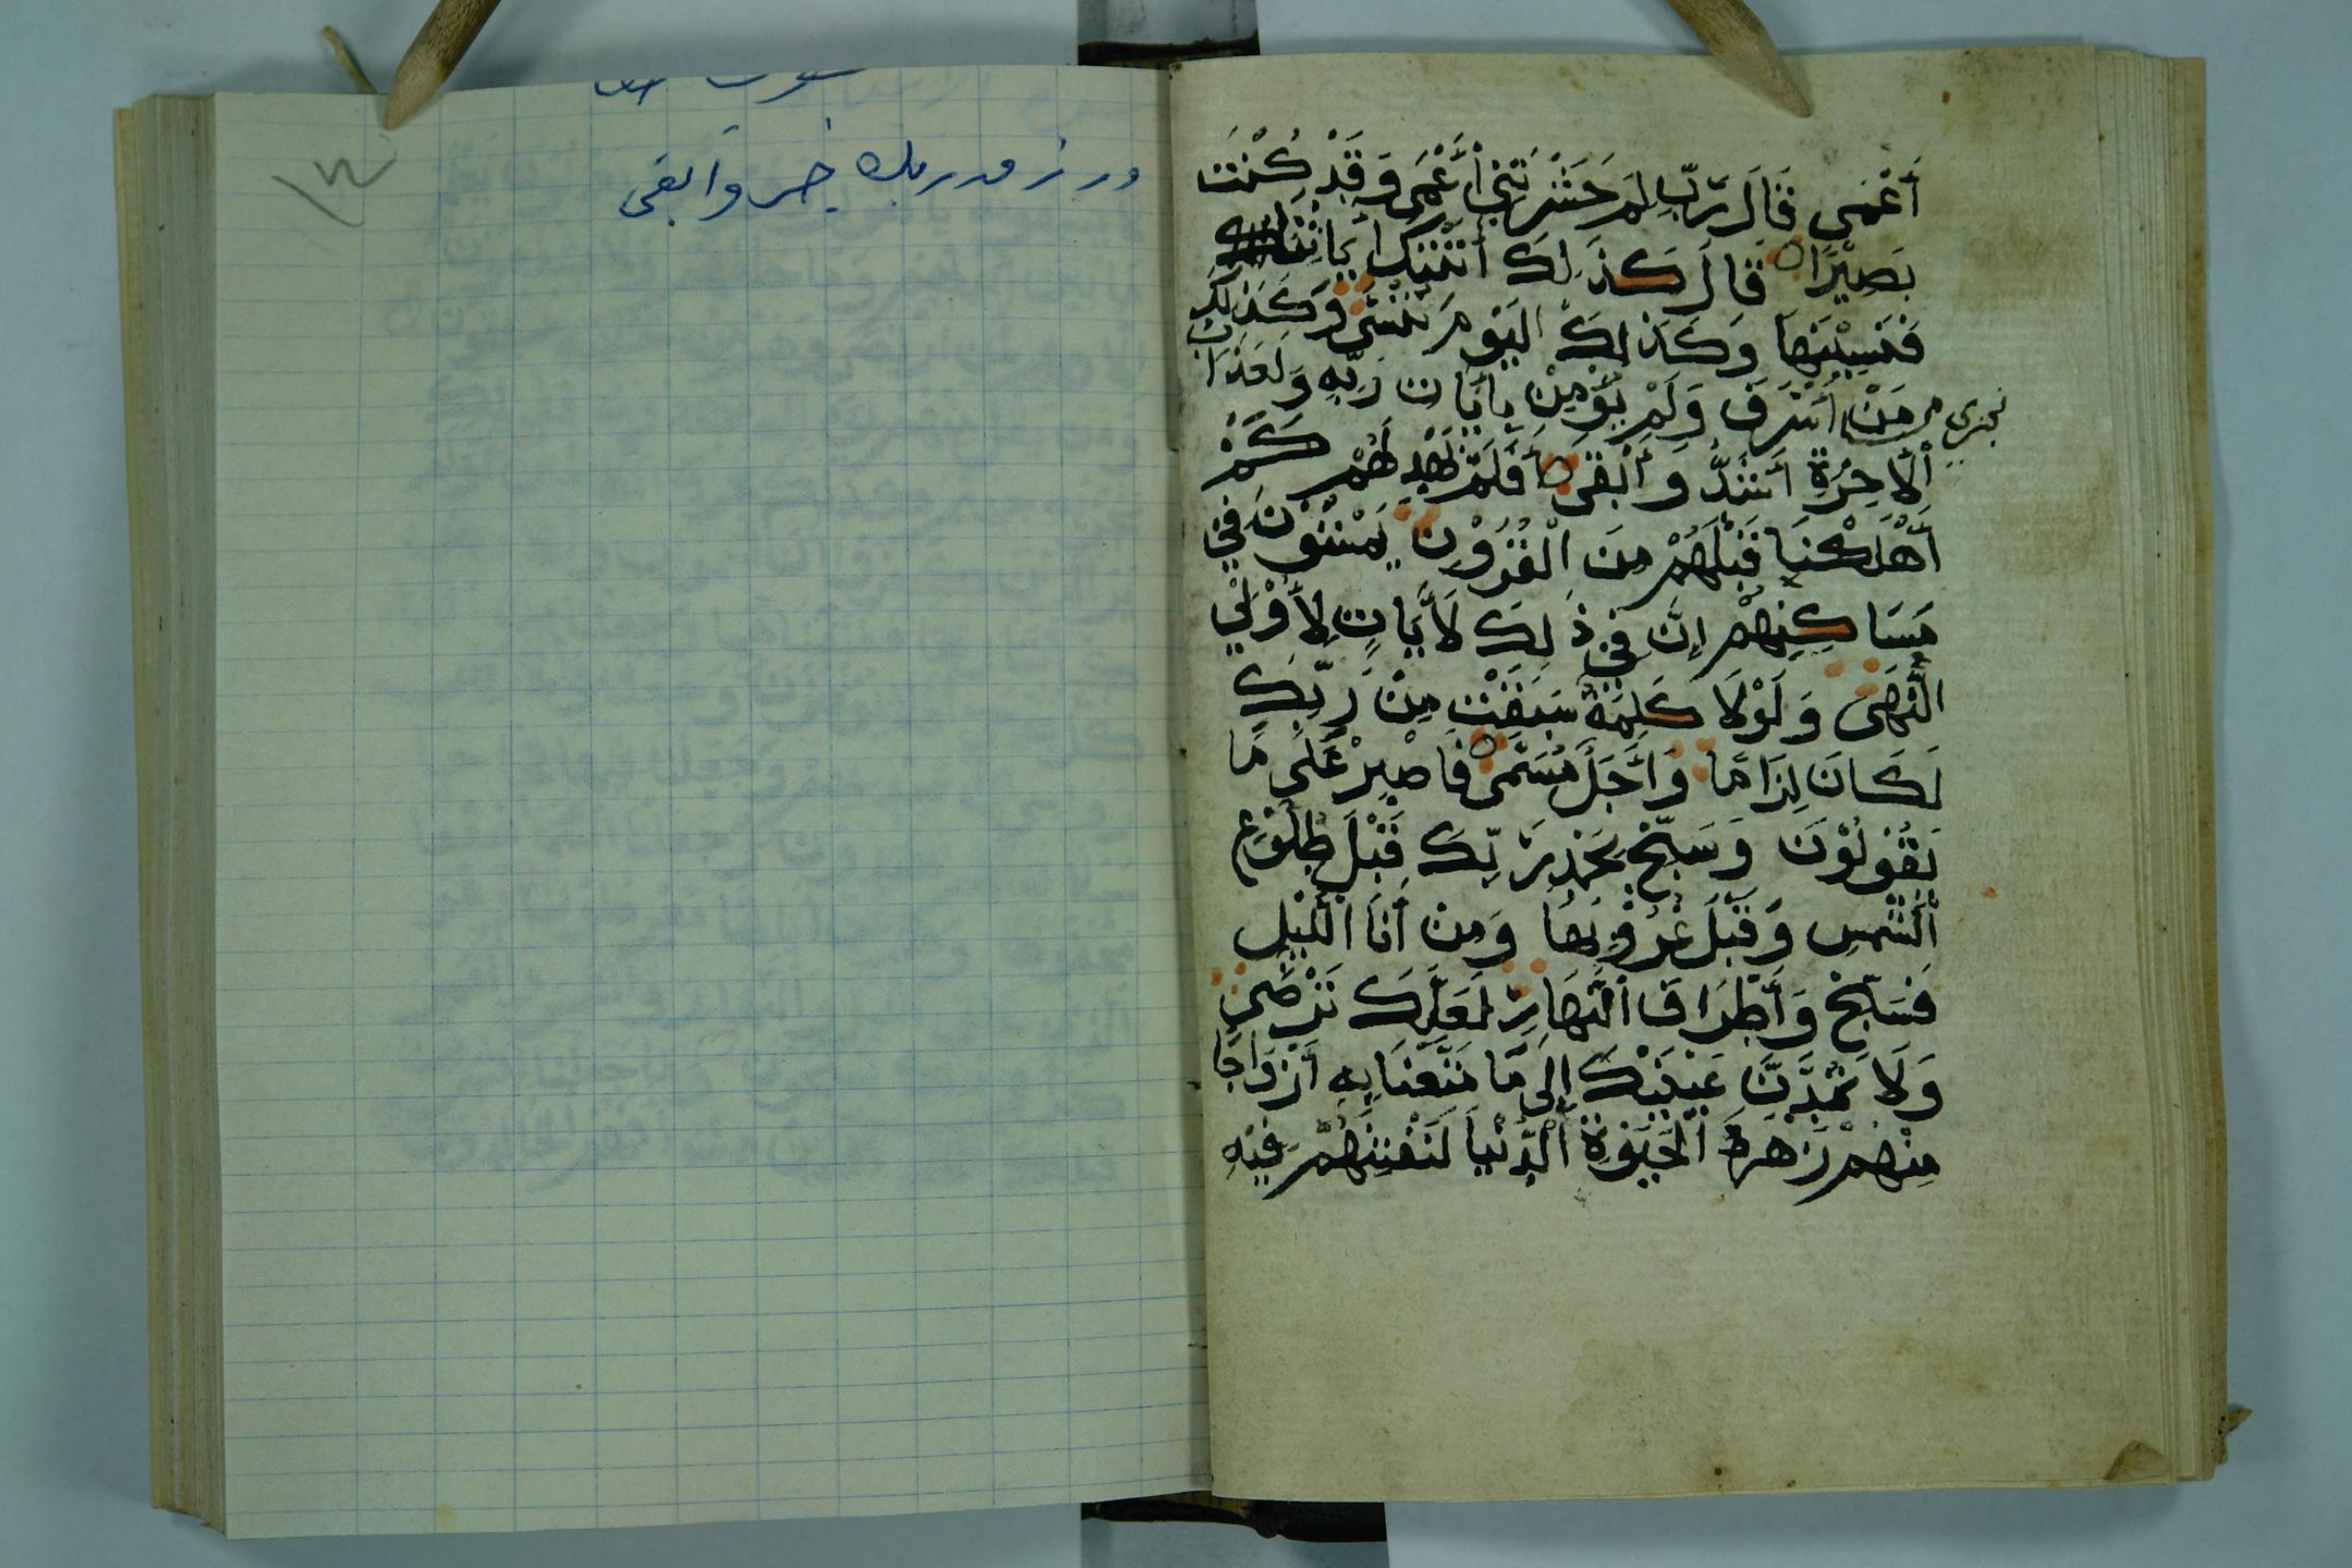 أَعْمَى قَالَ رَبِّ لِمَ حَشَرْتَنِي أَعْمَى وَقَدْ كُنْتَ
بَصِيْرًا قَالَ كَذَلِكَ أَتَتْكَ أَيَاتُنَا
فَنَسِيْتَهَا وَكَذَلِكَ الْيَوْمَ تُنْسَى وَكَذَلِكَ
نجزي مَنْ أَسْرَفَ وَلَمْ يُؤْمِنْ بِأَيَاتِ رَبِّهِ وَلَعَذَابُ
اْلأَخِرَةِ أَشَدُّ وَأَبْقَى أَفَلَمْ يَهْدِ لَهُمْ كَمْ
أَهْلَكْنَا قَبْلَهُمْ مِنَ الْقُرُوْنِ يَمْشُوْنَ فِي
مَسَاكِنِهِمْ إِنَّ فِي ذَلِكَ لَأَيَاتٍ لِأُوْلِي
النُّهَى وَلَوْلَا كَلِمَةٌ سَبَقَتْ مِنْ رَبِّكَ
لَكَانَ لِزَامًا وَأَجَلٌ مُسَمًّى فَاصْبِرْ عَلَى مَا
يَقُوْلُوْنَ وَسَبِّحْ بِحَمْدِ رَبِّكَ قَبْلَ طُلُوْعِ
الْشَّمْسِ وَقَبْلَ غُرُوْبِهَا وَمِنْ أَنَا الَّيْلِ
فَسَبِّحْ وَأَطْرَافَ النَّهَارِ لَعَلَّكَ تَرْضَى
وَلَا تَمُدَّنَّ عَيْنَيْكَ إِلَى مَا مَتَّعْنَا بِهِ أَزْوَاجًا
مِنْهُمْ زَهْرَةَ الْحَيَوةِ الْدُّنْيَا لِنَفْتِنَهُمْ فِيْهِ
ورزق ربك خير وابقى